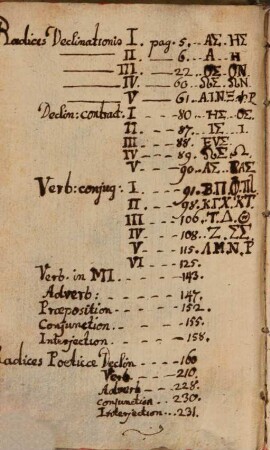 Radices Declinationis I. pag. 5. ΑΣ. ΗΣ
II. 6. Α Η
III. 22. ΟΣ. ΟΝ.
IV. 60 ΩΣ. ΩΝ.
V 61. Α.Ι.Ν.Ξ.Ρ
Declin: contract. I 80. ΗΣ. ΟΣ.
II 87. ΙΣ. Ι.
III 88. ΕΥΣ
IV 89. ΩΣ. Ω.
V 90. ΑΣ.
Verb: conjug: I 91. Β.Π.Φ.
II 98. Κ.Γ.Χ. ΚΤ
III 106. Τ. Δ. Θ
IV 108. Ζ. ΣΣ
V 115. Λ.Μ.Ν.Ρ
VI 125.
Verb. in MI. 143.
Adverb: 147.
Præposition 152.
Conjunction 155.
Interjection. 158.
Radices Poeticæ Declin 160
Verb 210.
Adverb 228.
Conjunction 230.
Interjection 231.